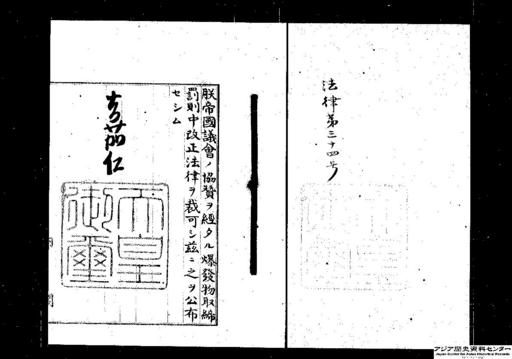 法律第三十四号
朕帝國議會ノ協贊ヲ經タル爆發物取締
罰則中改正法律ヲ裁可シ茲ニ之ヲ公布
セシム
嘉仁
天皇
御璽
アジア歴史資料センター
Japan Center for Asian Historical Records